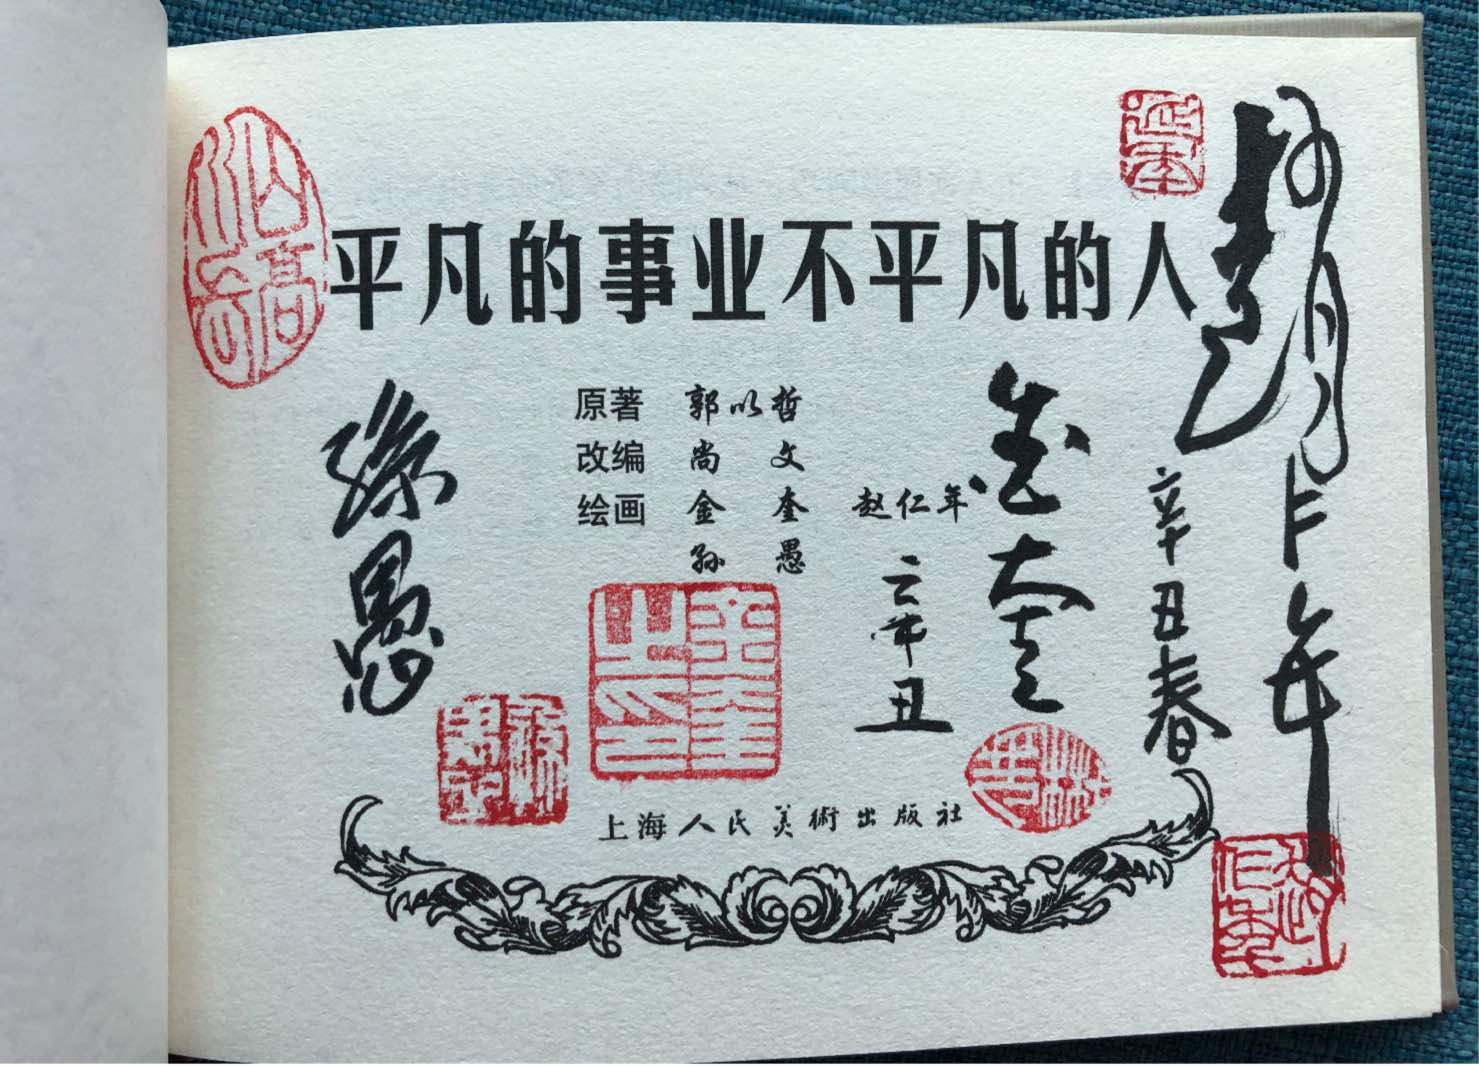 平凡的事业不平凡的人
原著 郭以哲
改编 尚文
绘画 金奎 赵仁年
孙愚
上海人民美術出版社
孫愚
金奎
辛丑
辛丑春
仁年
金奎之印